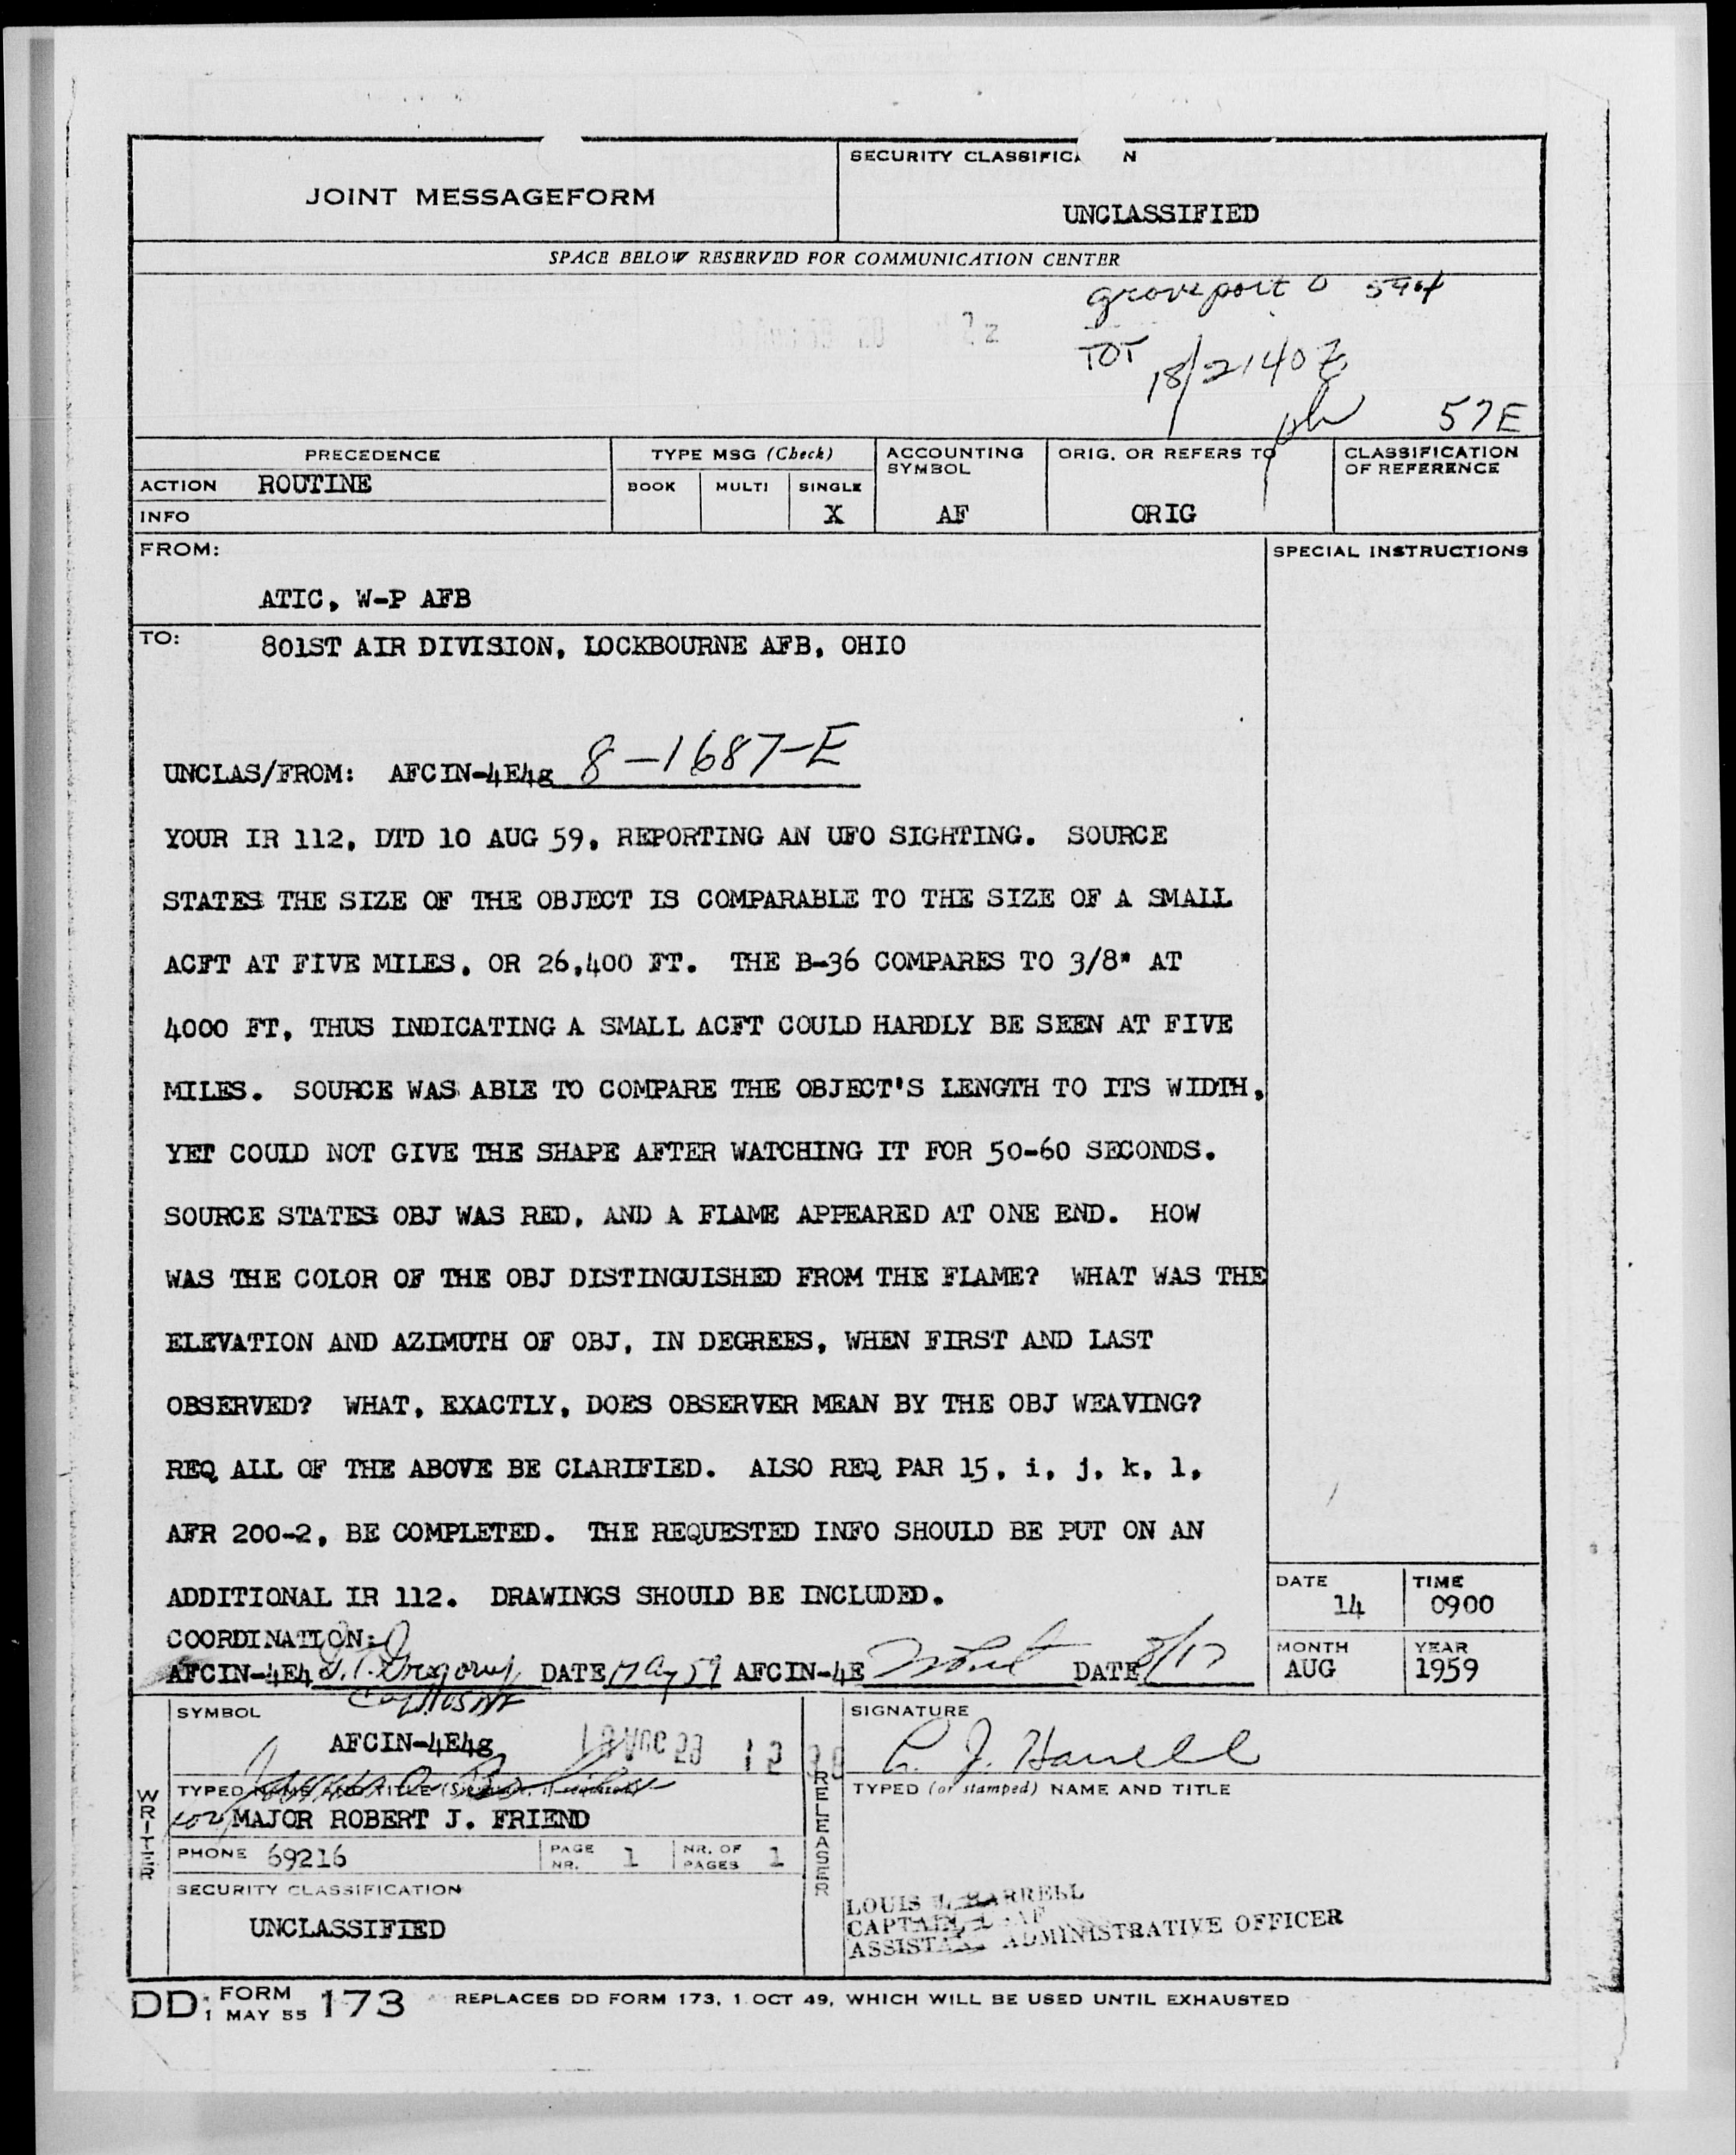 JOINT MESSAGEFORM
SECURITY CLASSIFICA N
UNCLASSIFIED
SPACE BELOW RESERVED FOR COMMUNICATION CENTER
Groveport O
TOT 18/2140Z
57E
PRECEDENCE
ACTION ROUTINE
INFO
TYPE MSG (Check)
BOOK MULTI SINGLE
X
ACCOUNTING SYMBOL
AF
ORIG. OR REFERS TO
ORIG
CLASSIFICATION OF REFERENCE
FROM:
ATIC, W-P AFB
SPECIAL INSTRUCTIONS
TO: 801ST AIR DIVISION, LOCKBOURNE AFB, OHIO
UNCLAS/FROM: AFCIN-4E4g 8-1687-E
YOUR IR 112, DTD 10 AUG 59, REPORTING AN UFO SIGHTING. SOURCE
STATES THE SIZE OF THE OBJECT IS COMPARABLE TO THE SIZE OF A SMALL
ACFT AT FIVE MILES, OR 26,400 FT. THE B-36 COMPARES TO 3/8" AT
4000 FT, THUS INDICATING A SMALL ACFT COULD HARDLY BE SEEN AT FIVE
MILES. SOURCE WAS ABLE TO COMPARE THE OBJECT'S LENGTH TO ITS WIDTH,
YET COULD NOT GIVE THE SHAPE AFTER WATCHING IT FOR 50-60 SECONDS.
SOURCE STATES OBJ WAS RED, AND A FLAME APPEARED AT ONE END. HOW
WAS THE COLOR OF THE OBJ DISTINGUISHED FROM THE FLAME? WHAT WAS THE
ELEVATION AND AZIMUTH OF OBJ, IN DEGREES, WHEN FIRST AND LAST
OBSERVED? WHAT, EXACTLY, DOES OBSERVER MEAN BY THE OBJ WEAVING?
REQ ALL OF THE ABOVE BE CLARIFIED. ALSO REQ PAR 15, i, j, k, l,
AFR 200-2, BE COMPLETED. THE REQUESTED INFO SHOULD BE PUT ON AN
ADDITIONAL IR 112. DRAWINGS SHOULD BE INCLUDED.
DATE 14
TIME 0900
MONTH AUG
YEAR 1959
COORDINATION:
AFCIN-4E4 DATE 17 Aug 59 AFCIN-4E DATE 8/17
SYMBOL
AFCIN-4E4g
SIGNATURE
WRITER
TYPED
for MAJOR ROBERT J. FRIEND
PHONE 69216
PAGE NR. 1
NR. OF PAGES 1
SECURITY CLASSIFICATION
UNCLASSIFIED
RELEASER
TYPED (or stamped) NAME AND TITLE
LOUIS J. HARRELL
CAPTAIN, USAF
ASSISTANT ADMINISTRATIVE OFFICER
DD FORM 1 MAY 55 173 REPLACES DD FORM 173, 1 OCT 49, WHICH WILL BE USED UNTIL EXHAUSTED